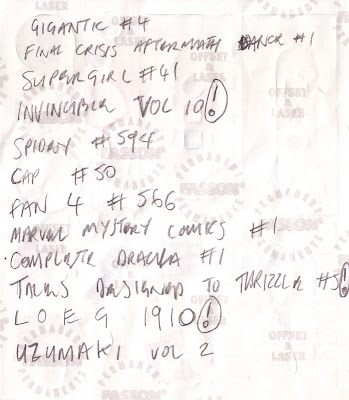 GIGANTIC #4
FINAL CRISIS AFTERMATH DANCE #1
SUPERGIRL #41
INVINCIBLE VOL 10!
SPIDEY #594
CAP #50
FAN 4 #566
MARVEL MYSTERY COMICS #1
COMPLETE DRACULA #1
TALES DESIGNED TO THRIZZLE #5!
LOEG 1910!
UZUMAKI VOL 2
OFFSET & LASER
PERMANENT
PERMANENTE
FASSON